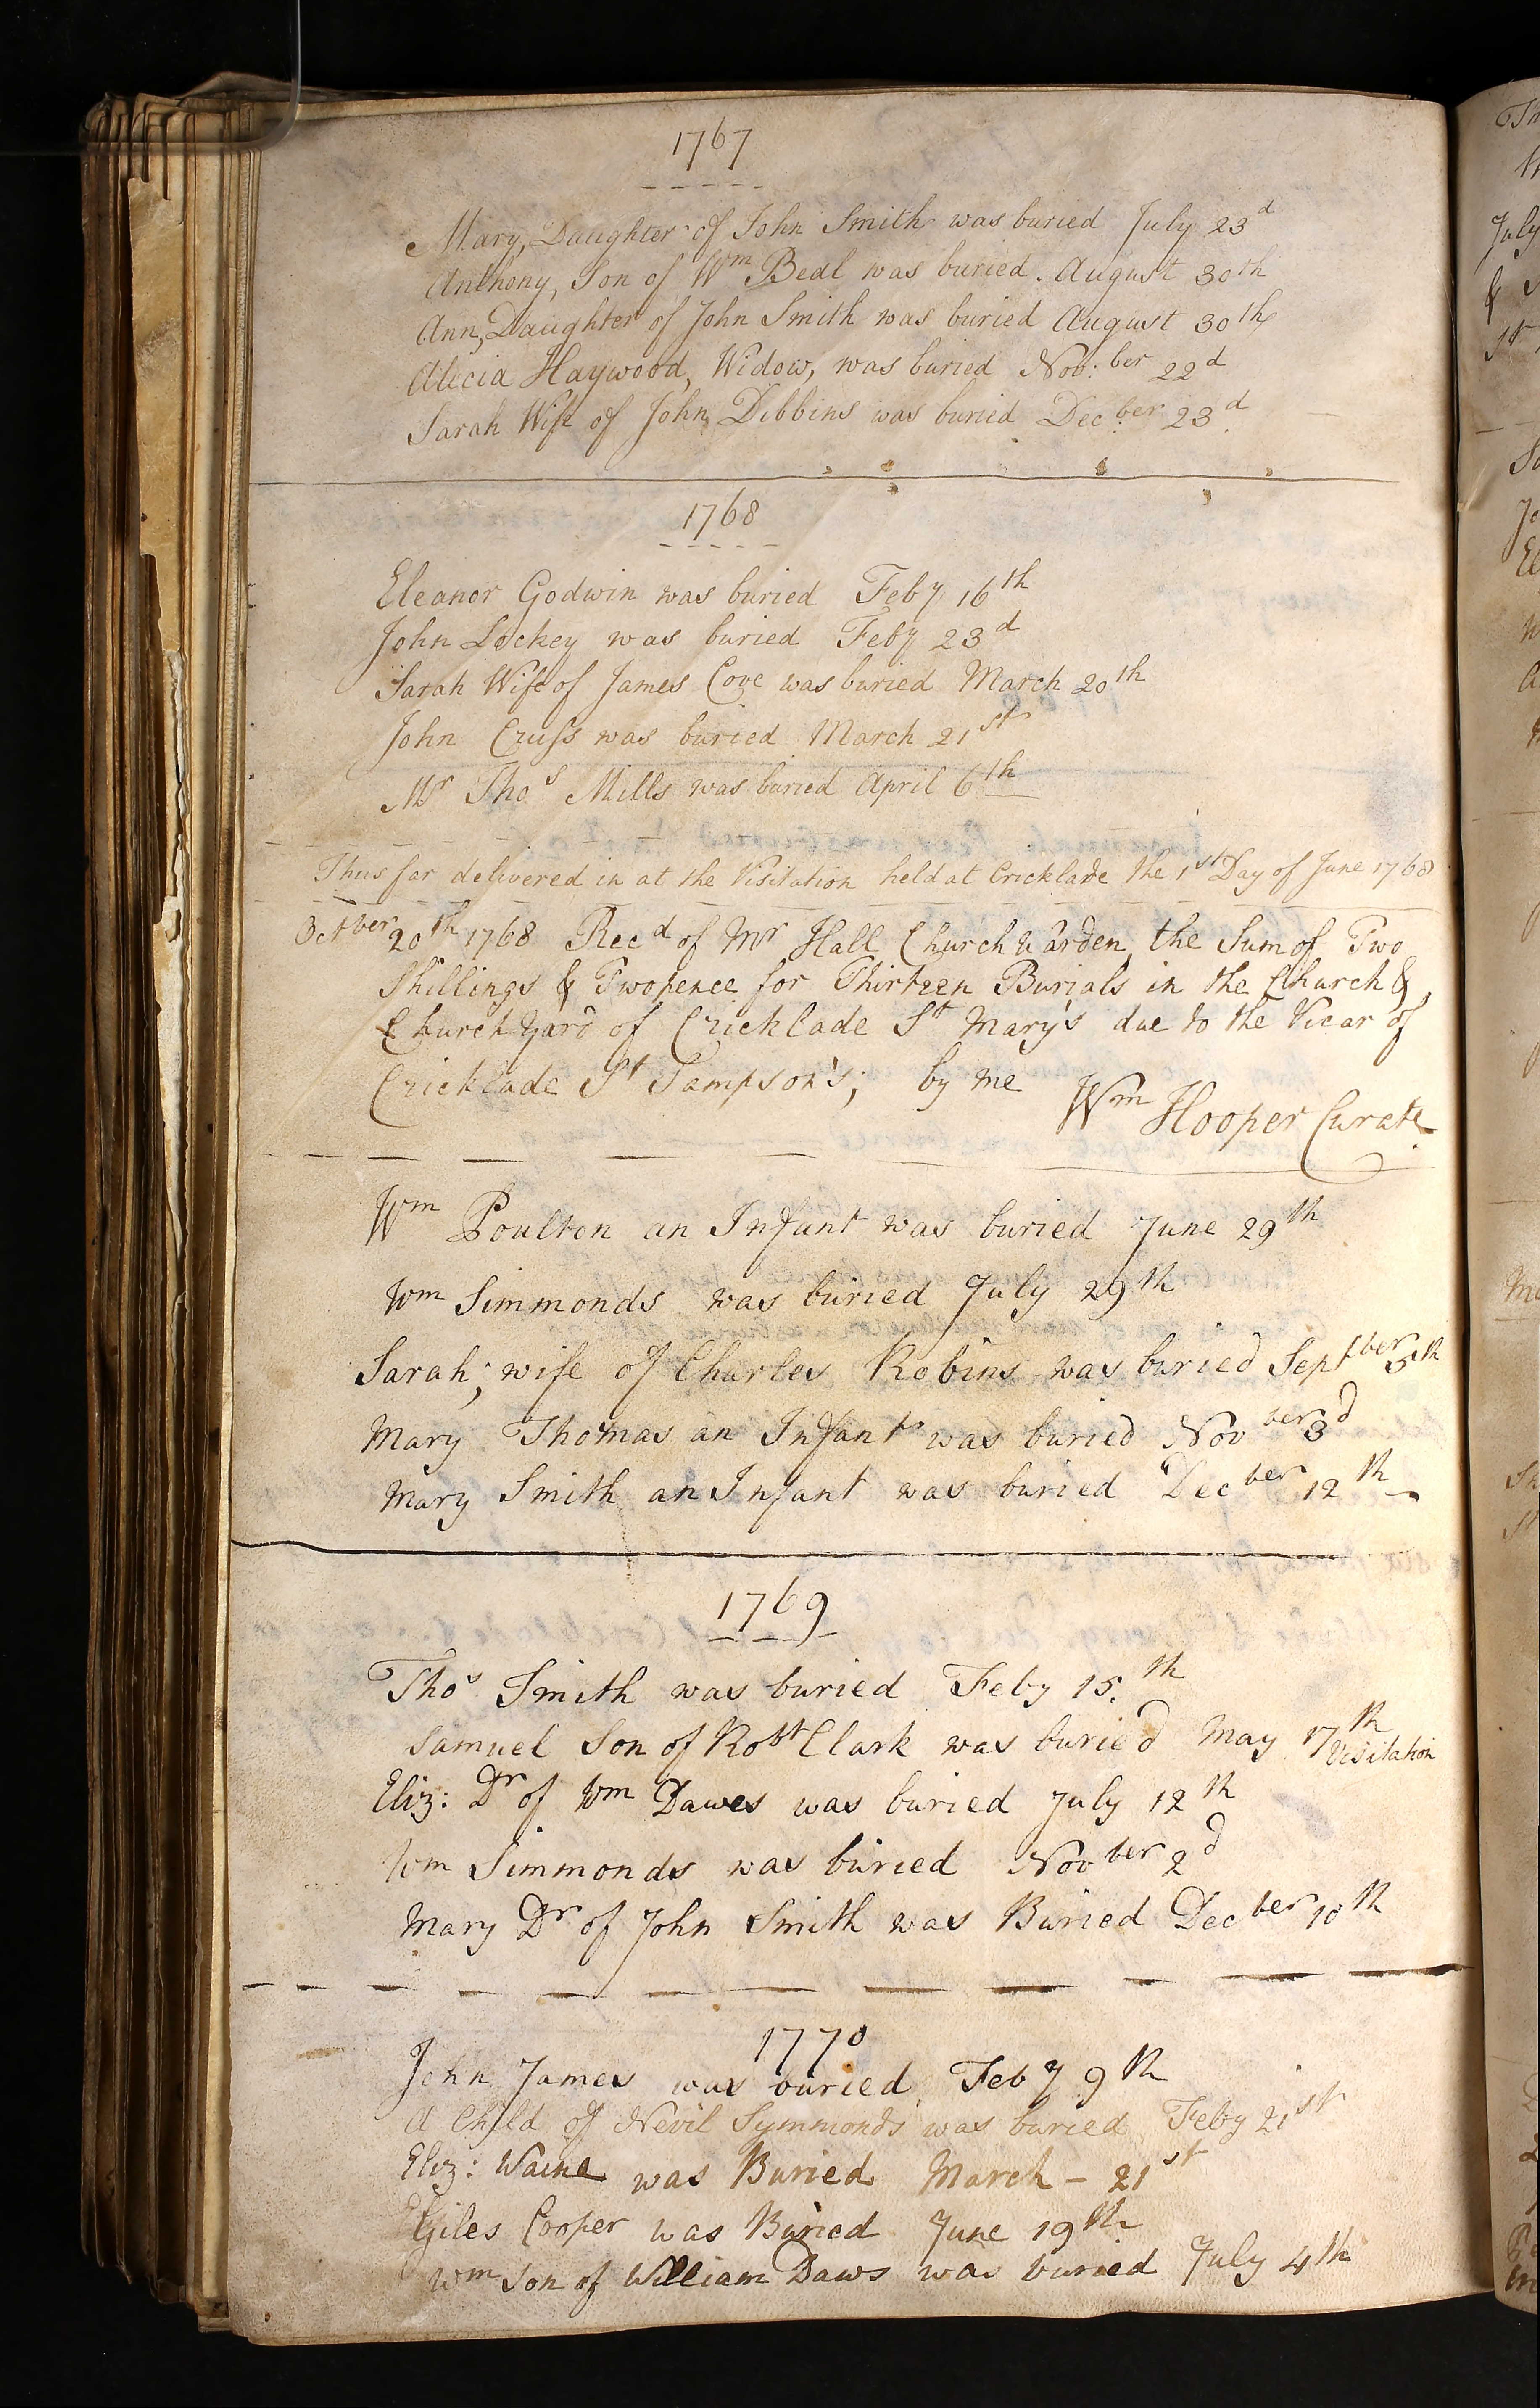 1767
Mary, Daughter of John Smith was buried July 23d
Anthony, Son of Wm Bedl was buried. August 30th
Ann, Daughter of John Smith was buried August 30th
Alicia Haywood, Widow, was buried Nov:ber 22d
Sarah Wife of John Dibbins was buried Decber 23d
1768
Eleanor Godwin was buried Feby 16th
John Lockey was buried Feby 23d
Sarah Wife of James Cove was buried March 20th
John Cruss was buried March 21st
Mr Thos Mills was buried April 6th
Thus far delivered in at the Visitation held at Cricklade the 1st Day of June 1768
Octber 20th 1768 Recd of Mr Hall Church Warden, the Sum of Two
Shillings & Twopence for Thirteen Burials in the Church &
Church Yard of Cricklade St Mary's due to the Vicar of
Cricklade St Sampson's; by me Wm Hooper Curate.
Wm Poulton an Infant was buried June 29th
Wm Simmonds was buried July 29th
Sarah; wife of Charles Robins was buried Septber 5th
Mary Thomas an Infant was buried Novber 3d
Mary Smith an Infant was buried Decber 12th
1769
Thos Smith was buried Feby 15.th
Samuel Son of Robt Clark was buried May 17th Visitation
Eliz: Dr of Wm Dawes was buried July 12th
Wm Simmonds was buried Novber 2d
Mary Dr of John Smith was Buried Decber 10th
1770
John James was buried Feby 9th
A Child of Nevil Symmonds was buried Feby 21st
Eliz: Waine was Buried March - 21st
Giles Cooper was Buried June 19th
Wm Son of William Daws was buried July 4th